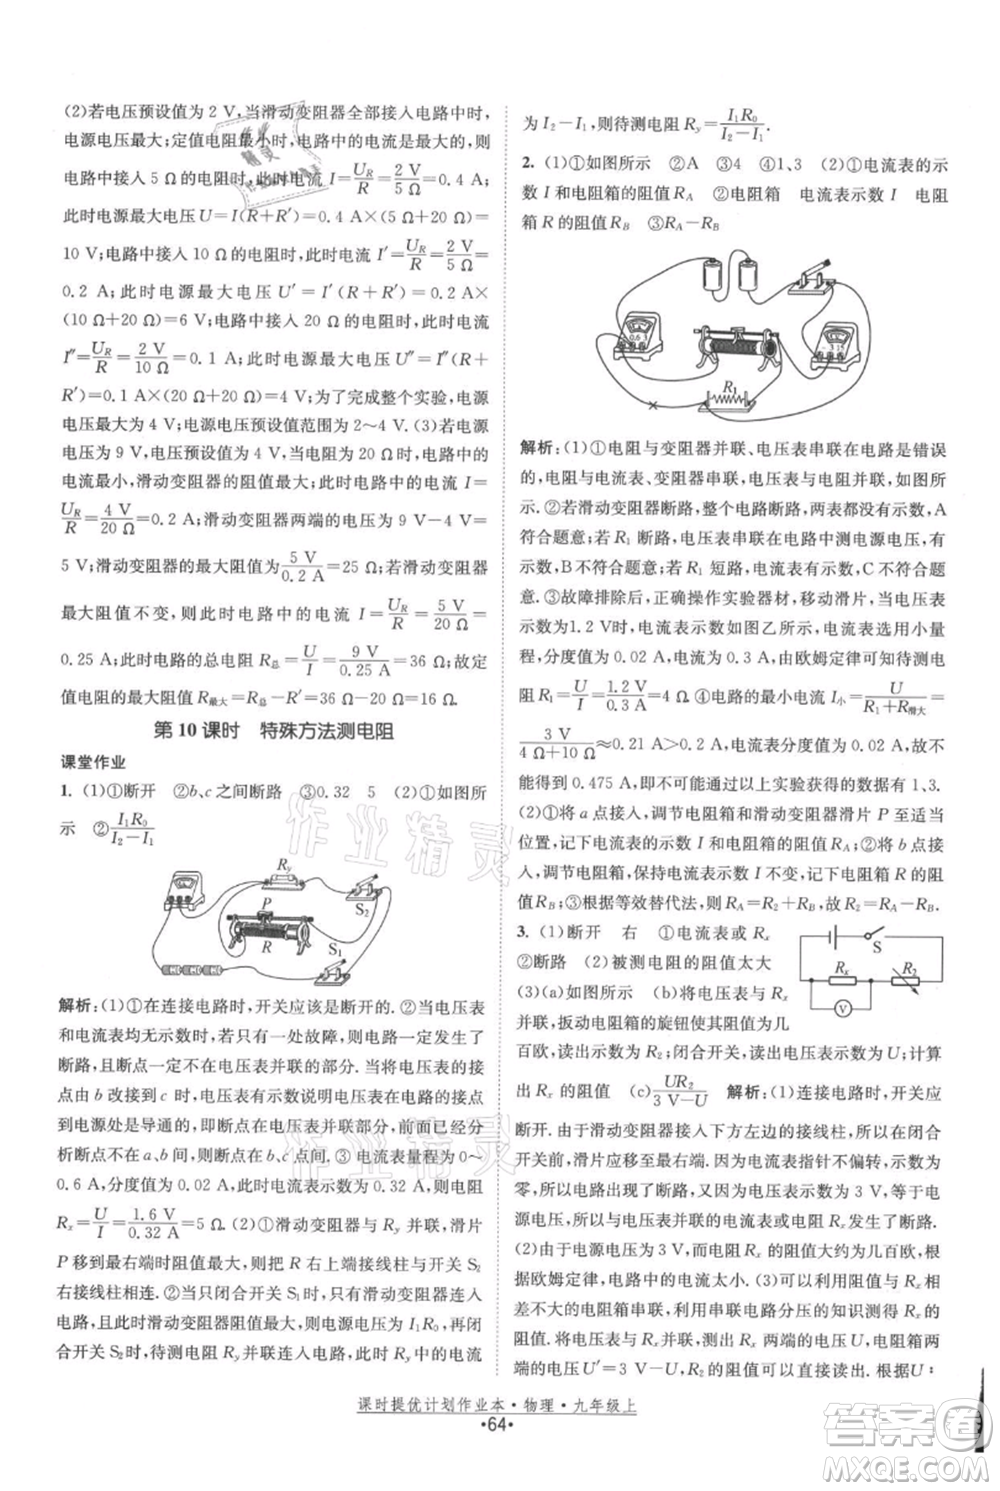 (2)若电压预设值为 2 V,当滑动变阻器全部接入电路中时,
电源电压最大;定值电阻最小时,电路中的电流最大,当电
路中接入 5 Ω 时,此时电流 I=U_R/R=2 V/5 Ω=0.4 A,此
时电源最大电压 U=I(R+R′)=0.4 A×(5 Ω+20 Ω)=10
V;电路中接入 10 Ω 电阻时,此时电流 I′=U_R/R=2 V/10 Ω=
0.2 A;此时电源最大电压 U′=I′(R+R′)=0.2 A×
(10 Ω+20 Ω)=6 V;电路中接入 20 Ω 电阻时,此时电流
I″=U_R/R=2 V/10 Ω=0.1 A;此时电源最大电压 U″=I″(R+
R′)=0.1 A×(20 Ω+20 Ω)=4 V;为了完成整个实验,电
源电压应为 4 V,电压预设值范围为 2~4 V. (3)若电源
电压为 9 V,电压预设值为 4 V,接入 20 Ω 定值电阻时,电
压表示数达到 4 V时,滑动变阻器的阻值最大,电流 I=
U_R/R=4 V/20 Ω=0.2 A;滑动变阻器两端的电压为 9 V-4 V=
5 V;滑动变阻器的阻值为 5 V/0.2 A=25 Ω;若滑动变阻器
最大阻值不变,则此时电路中的电流 I=U_R/R=5 V/20 Ω=
0.25 A;此时电路的总电阻 R总=U/I=9 V/0.25 A=36 Ω;故定
值电阻的最大阻值 R最大=R总-R′=36 Ω-20 Ω=16 Ω.
第 10 课时 特殊方法测电阻
课堂作业
1. (1)①断开 ②b、c 之间断路 ③0.32 5 (2)①如图所
示 ②I₁R₀/(I₂-I₁)
Ry
S₂
P
R
S₁
解析:(1)①在连接电路时,开关应该是断开的. ②当电压表
和电流表均无示数时,说明一定有一处故障,而且一定发生了
断路,断路点一定不在与电压表并联的部分;将电压表的接
点由 b 改接到 c 时,电压表有示数,电流表无示数,说明这时的
电源是导通的,断点在与电压表并联部分,前面实验已经分
析断点不在 a、b 间,断点在 b、c 间. ③ 电流表量程为 0~
0.6 A,分度值为 0.02 A,此时电流表示数为 0.32 A,则电阻
Rx=U/I=1.6 V/0.32 A=5 Ω. (2)①滑动变阻器与 Ry 并联,滑片
P 移动至最右端时阻值最大,则 R 右上端接线柱和开关 S₂
右接线柱相连. ②当只闭合 S₁时,只有滑动变阻器连入电
路,电路中的电流即通过滑动变阻器的电流为 I₁;再闭
合开关 S₂ 时,待测电阻 Ry 并联连入电路,则通过 Ry 的电流
为 I₂-I₁,则待测电阻 Ry=I₁R₀/(I₂-I₁).
2. (1)①如图所示 ②A ③4 ④1、3 (2)①电流表的示
数 I 和电阻箱的阻值 R_A ②电阻箱 电流表示数 I 电阻
箱 R 的阻值 R_B ③R_A-R_B
R₁
解析:(1)①电阻与变阻器并联、电压表串联在电路是错误
的,电阻与电流表、变阻器串联,电压表与电阻并联,如图
所示. ②若滑动变阻器断路,整个电路断路,两表都没有示数,A
符合题意;若 R₁ 断路,电压表串联在电路中测电源电压,有
示数,B不符合题意;若 R₁ 短路,电流表有示数,C不符合题
意. ③故障排除后,正确操作实验器材,移动滑片,当电压表
示数为1.2 V时,电流表示数如图乙所示,电流表选用小量
程,分度值为 0.02 A,电流为 0.3 A,由欧姆定律可知待测电
阻 R₁=U/I=1.2 V/0.3 A=4 Ω. ④电路的最小电流 I小=U/(R₁+R滑大)=
3 V/(4 Ω+10 Ω)≈0.21 A>0.2 A;电流表分度值为 0.02 A,故不
能得到 0.475 A,因此以上实验获得的数据可能有 1、3.
(2)①将 a 点接入,调节电阻箱和滑动变阻器滑片 P 至适当
位置,记下电流表示数 I 和电阻箱的阻值 R_A;②将 b 点接
入,调节电阻箱,保持电流表示数 I 不变,记下电阻箱 R 的阻
值 R_B;③根据等效替代法,则 R_A=Rx+R_B,Rx=R_A-R_B.
3. (1)断开 右 ①电流表或 Rx
②断路 (2)被测电阻的阻值太大
(3)(a)如图所示 (b)将电压表与 Rx
并联,扳动电阻箱的旋钮使其接入几
百欧,读出示数 R₂;闭合开关,读出电压表示数为 U;计算
出 Rx 的阻值 (c)UR₂/(3 V-U) 解析:(1)连接电路时,开关应
断开. 由于滑动变阻器接入了左边的接线柱,所以在闭合
开关前,滑片应移至最右端. 电流表指针不偏转,示数为
零,所以电路出现了断路,又因为电压表示数为 3 V,等于电
源电压,所以与电压表并联的电流表或 Rx 发生了断路.
(2)由于电源电压为 3 V,被测电阻 Rx 的阻值大约几百欧,根
据欧姆定律,电路中的电流太小. (3)用阻值和 Rx 的阻值相
差不大的电阻箱串联,利用串联电路分压的知识测出 Rx 的
阻值. 将电压表与 Rx 并联,测出 Rx 两端的电压,电阻箱两
端的电压 U′=3 V-U,电阻箱的阻值可以直接读出. 则U:
S
Rx
R₂
V
课时提优计划作业本·物理·九年级上
·64·
作业精灵
作业精灵
答案圈
MXQE.COM